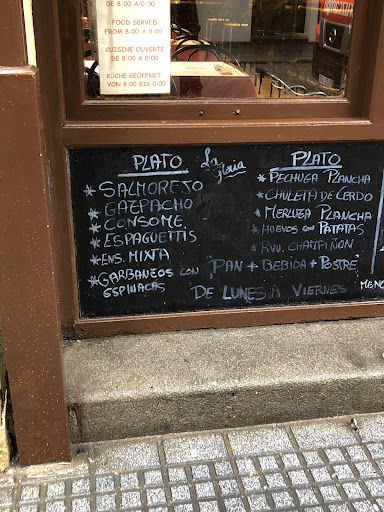 DE 8:00 A 0:00
FOOD SERVED
FROM 8:00 A 0:00
CUISINE OUVERTE
DE 8:00 A 0:00
KÜCHE GEÖFFNET
VON 8:00 BIS 0:00
PLATO
* SALMOREJO
* GAZPACHO
* CONSOME
* ESPAGUETTIS
* ENS. MIXTA
* GARBANZOS CON
ESPINACAS
La
PLATO
* PECHUGA PLANCHA
* CHULETA DE CERDO
* MERLUZA PLANCHA
* HUEVOS CON PATATAS
* RVU. CHAMPIÑON
PAN + BEBIDA + POSTRE
DE LUNES A VIERNES
MENÚ